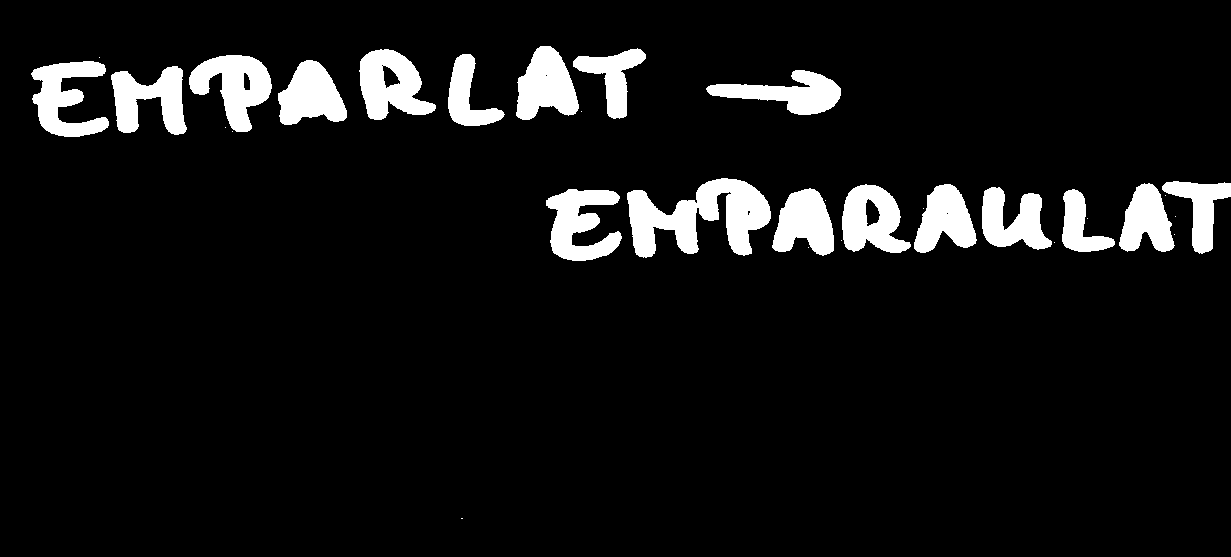 EMPARLAT →
EMPARAULAT